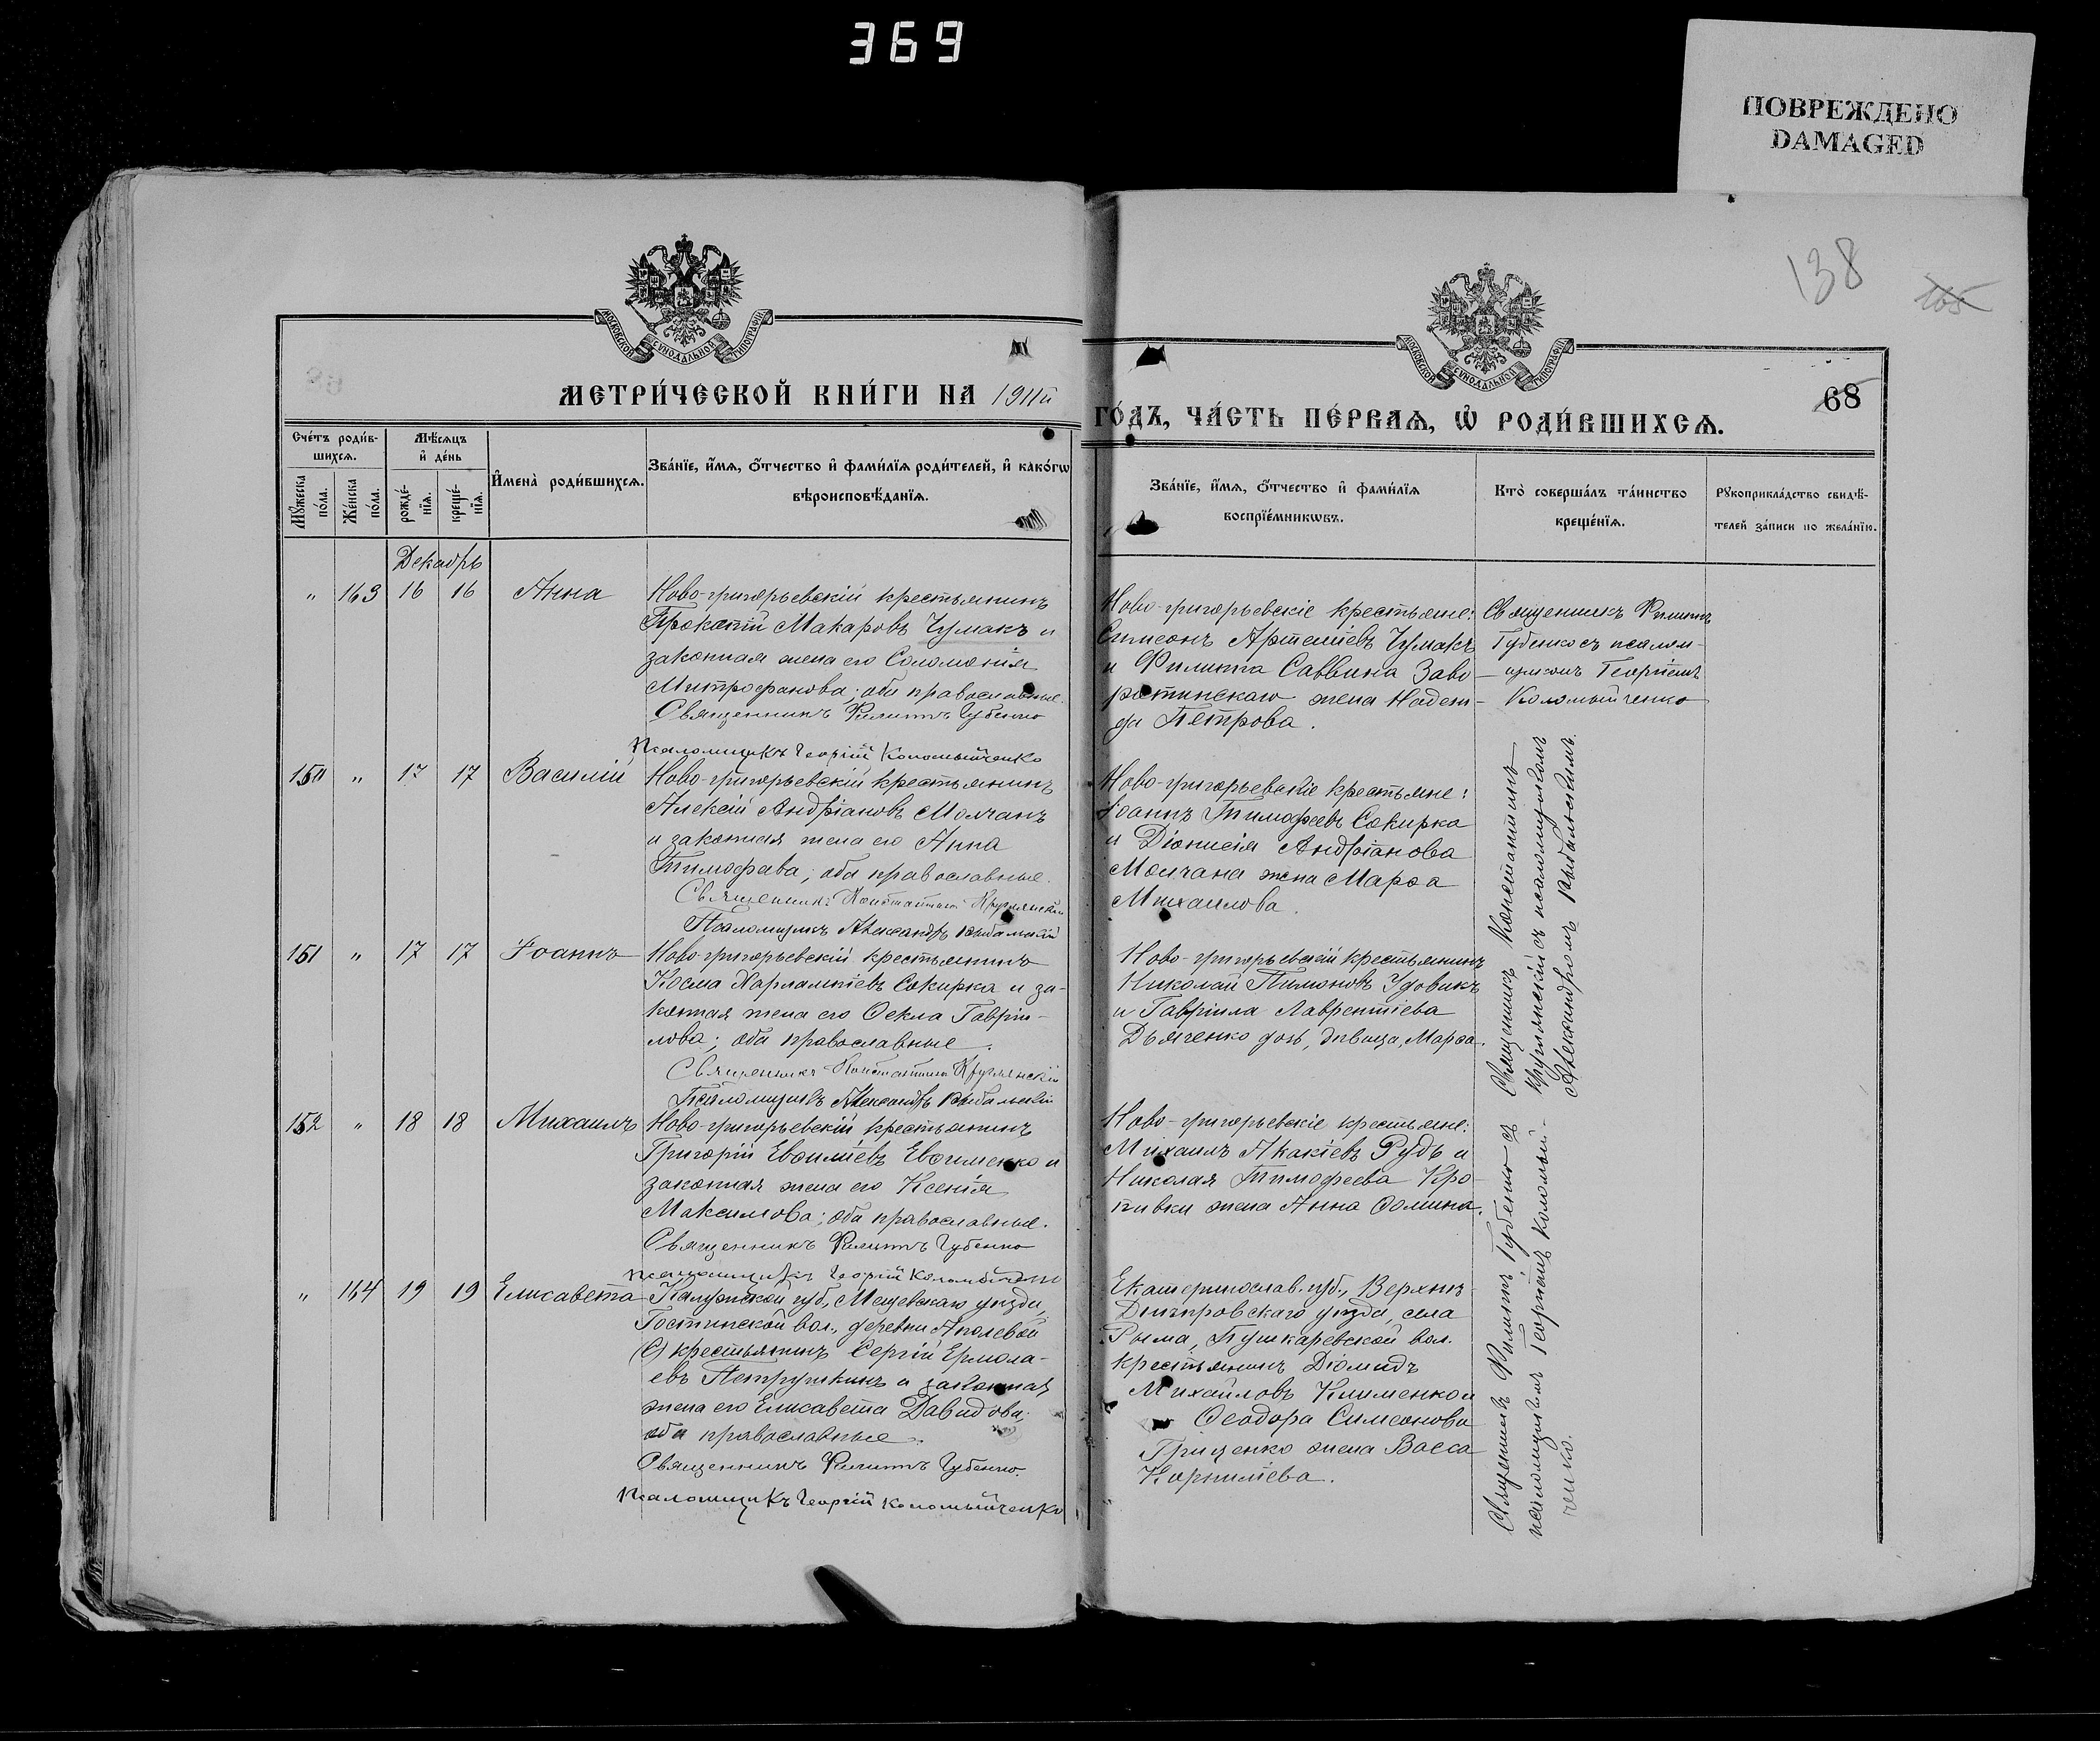 369
ПОВРЕЖДЕНО
DAMAGED
138
105
68
МОСКОВСКОЙ СѴНОДАЛЬНОЙ ТИПОГРАФІИ
МОСКОВСКОЙ СѴНОДАЛЬНОЙ ТИПОГРАФІИ
МЕТРИ́ЧЕСКОЙ КНИ́ГИ НА 1911й
ГО́ДЪ, ЧА́СТЬ ПЕ́РВАѦ, Ѡ҆ РОДИ́ВШИХСѦ.
Сче́тъ роди́в-
шихсѧ.
Мꙋ́жеска по́ла.
Же́нска по́ла.
Мѣ́сѧцъ
и҆ де́нь
рожде́-
нїѧ.
креще́-
нїѧ.
И҆мена̀ роди́вшихсѧ.
Зва́нїе, и҆́мѧ, ѻ҆́тчество и҆ фами́лїѧ роди́телей, и҆ како́гѡ
вѣроисповѣ́данїѧ.
Зва́нїе, и҆́мѧ, ѻ҆́тчество и҆ фами́лїѧ
воспрїе́мникѡвъ.
Кто̀ соверша́лъ та́инство
креще́нїѧ.
Рꙋкоприкла́дство свидѣ́-
телей за́писи по жела́нїю.
Декабрь
" 163 16 16 Анна
Ново-григорьевскій крестьянинъ
Прокопій Макаровъ Чумакъ и
законная жена его Соломонія
Митрофанова; оба православные.
Священникъ Филиппъ Губенко
Псаломщикъ Георгій Коломыйченко
Ново-григорьевскіе крестьяне:
Симеонъ Артеміевъ Чумакъ
и Филиппа Саввина Заво-
ротинскаго жена Надеж-
да Петрова.
Священникъ Филиппъ
Губенко съ псалом-
щикомъ Георгіемъ
Коломыйченко
150 " 17 17 Василій
Ново-григорьевскій крестьянинъ
Алексій Андріановъ Молчанъ
и законная жена его Анна
Тимофева; оба православные.
Священникъ Константинъ Круглянскій
Псаломщикъ Александръ Рыбальскій
Ново-григорьевскіе крестьяне:
Іоаннъ Тимофеевъ Сокирка
и Діонисія Андріанова
Молчана жена Марѳа
Михаилова.
Священникъ Константинъ
Круглянскій съ псаломщикомъ
Александромъ Рыбальскимъ.
151 " 17 17 Іоаннъ
Ново-григорьевскій крестьянинъ
Косма Харлампіевъ Сокирка и за-
конная жена его Ѳекла Гаврі-
лова; оба православные.
Священникъ Константинъ Круглянскій
Псаломщикъ Александръ Рыбальскій
Ново-григорьевскій крестьянинъ
Николай Пимоновъ Удовикъ
и Гавріила Лаврентіева
Дьяченко дочь, дѣвица, Марѳа.
152 " 18 18 Михаилъ
Ново-григорьевскій крестьянинъ
Григорій Евѳиміевъ Евѳименко и
законная жена его Ксенія
Максимова; оба православные.
Священникъ Филиппъ Губенко
Псаломщикъ Георгій Коломыйченко
Ново-григорьевскіе крестьяне:
Михаилъ Акакіевъ Рудь и
Николая Тимофеева Кро-
пивки жена Анна Ѳомина.
Священникъ Филиппъ Губенко съ
псаломщикомъ Георгіемъ Коломый-
ченко.
" 164 19 19 Елисавета
Калужской губ., Мещевскаго уѣзда,
вол., деревни
крестьянинъ Сергій Ермола-
евъ Петрушкинъ и законная
жена его Елисавета Давидова;
оба православные.
Священникъ Филиппъ Губенко.
Псаломщикъ Георгій Коломыйченко
Екатеринослав. губ., Верхнѣ-
Днѣпровскаго уѣзда, села
Пушкаревской вол.
крестьянинъ Діомидъ
Михайловъ Клименко и
Ѳеодора Симеонова
Гриценко жена Васса
Корниліева.